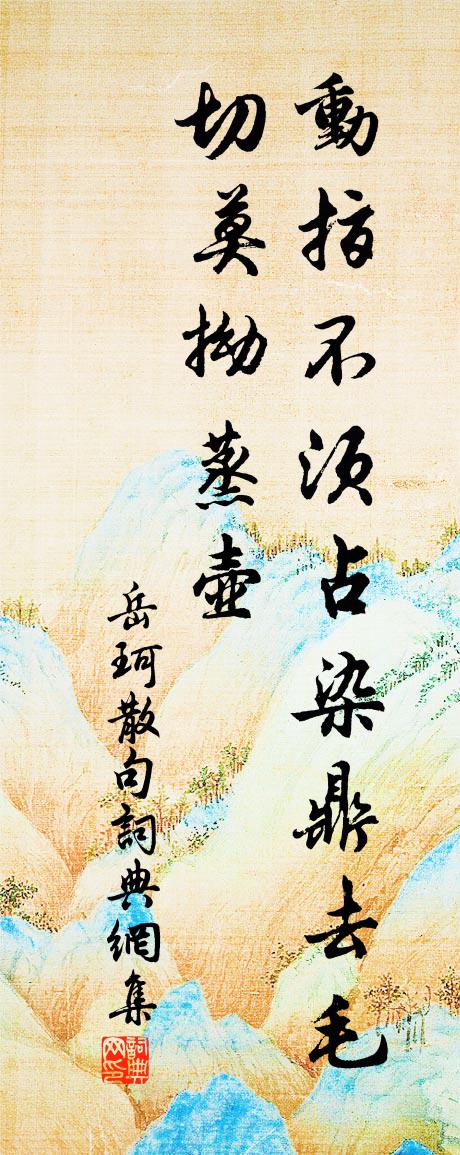 動指不須占染鼎去毛
切莫拗蒸壺
岳珂散句詞典網集
詞典網印